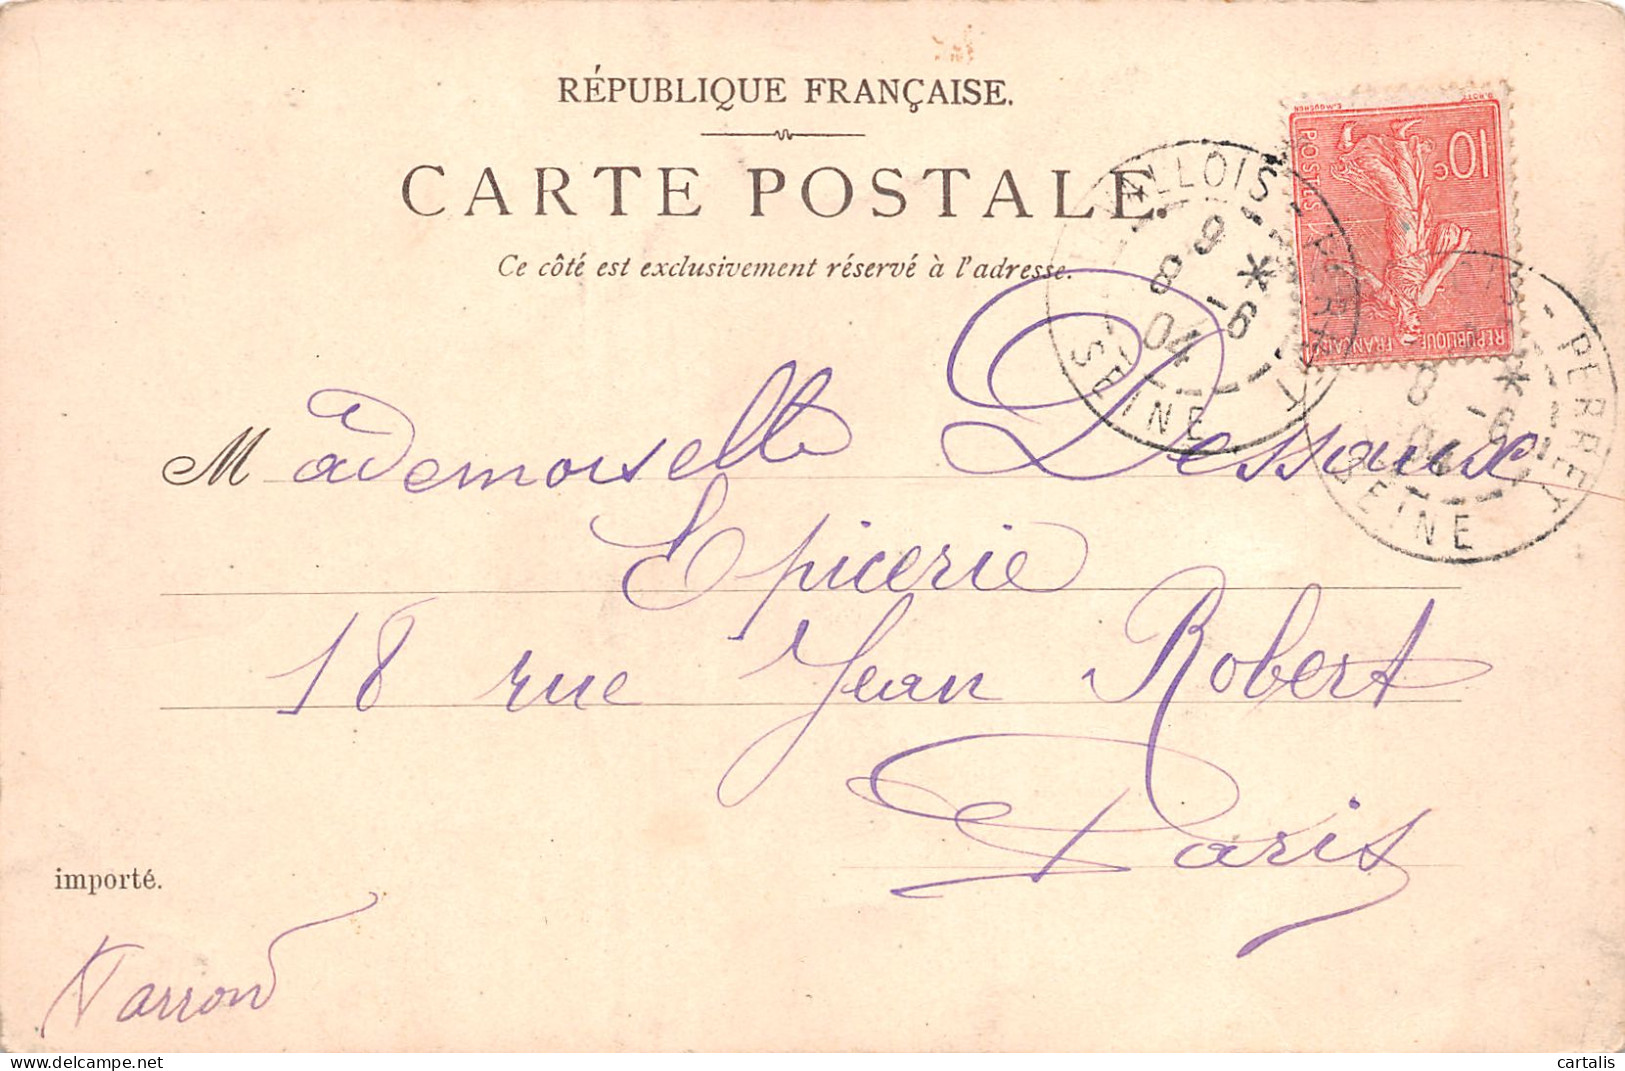 RÉPUBLIQUE FRANÇAISE.
CARTE POSTALE.
Ce côté est exclusivement réservé à l'adresse.
10c
POSTES
RÉPUBLIQUE FRANÇAISE
LEVALLOIS-PERRET
9 *
8 -6
04
SEINE
PERRET
* 8 -6
04
SEINE
Mademoiselle Dessaux
Epicerie
18 rue Jean Robert
Paris
importé.
4e arrond
cartalis